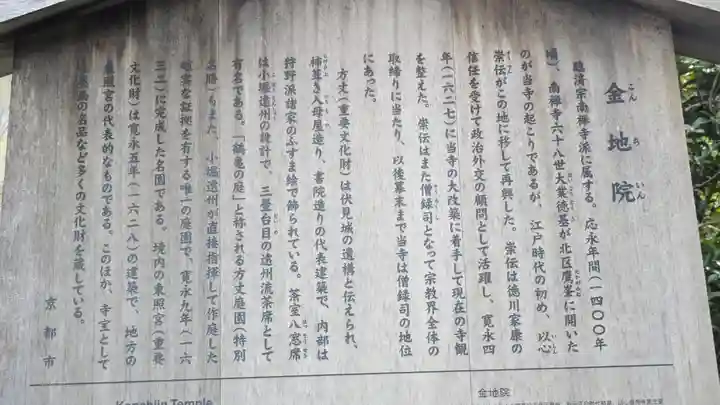 金地院
こん ち いん
臨済宗南禅寺派に属する。応永年間(一四〇〇年
頃)、南禅寺六十八世大業徳基が北区鷹峯に開いた
のが当寺の起こりであるが、江戸時代の初め、以心
崇伝がこの地に移して再興した。崇伝は徳川家康の
信任を受けて政治外交の顧問として活躍し、寛永四
年(一六二七)に当寺の大改築に着手して現在の寺観
を整えた。崇伝はまた僧録司となって宗教界全体の
取締りに当たり、以後幕末まで当寺は僧録司の地位
にあった。
方丈(重要文化財)は伏見城の遺構と伝えられ、
杮葺き入母屋造り、書院造りの代表建築で、内部は
狩野派諸家のふすま絵で飾られている。茶室八窓席
は小堀遠州の設計で、三畳台目の遠州流茶席として
有名である。「鶴亀の庭」と称される方丈庭園(特別
名勝)もまた、小堀遠州が直接指揮して作庭した
確実な証拠を有する唯一の庭園で、寛永九年(一六
三二)に完成した名園である。境内の東照宮(重要
文化財)は寛永五年(一六二八)の建築で、地方の
東照宮の代表的なものである。このほか、寺宝として
の名品など多くの文化財を蔵している。
京都市
Konchiin Temple
金地院